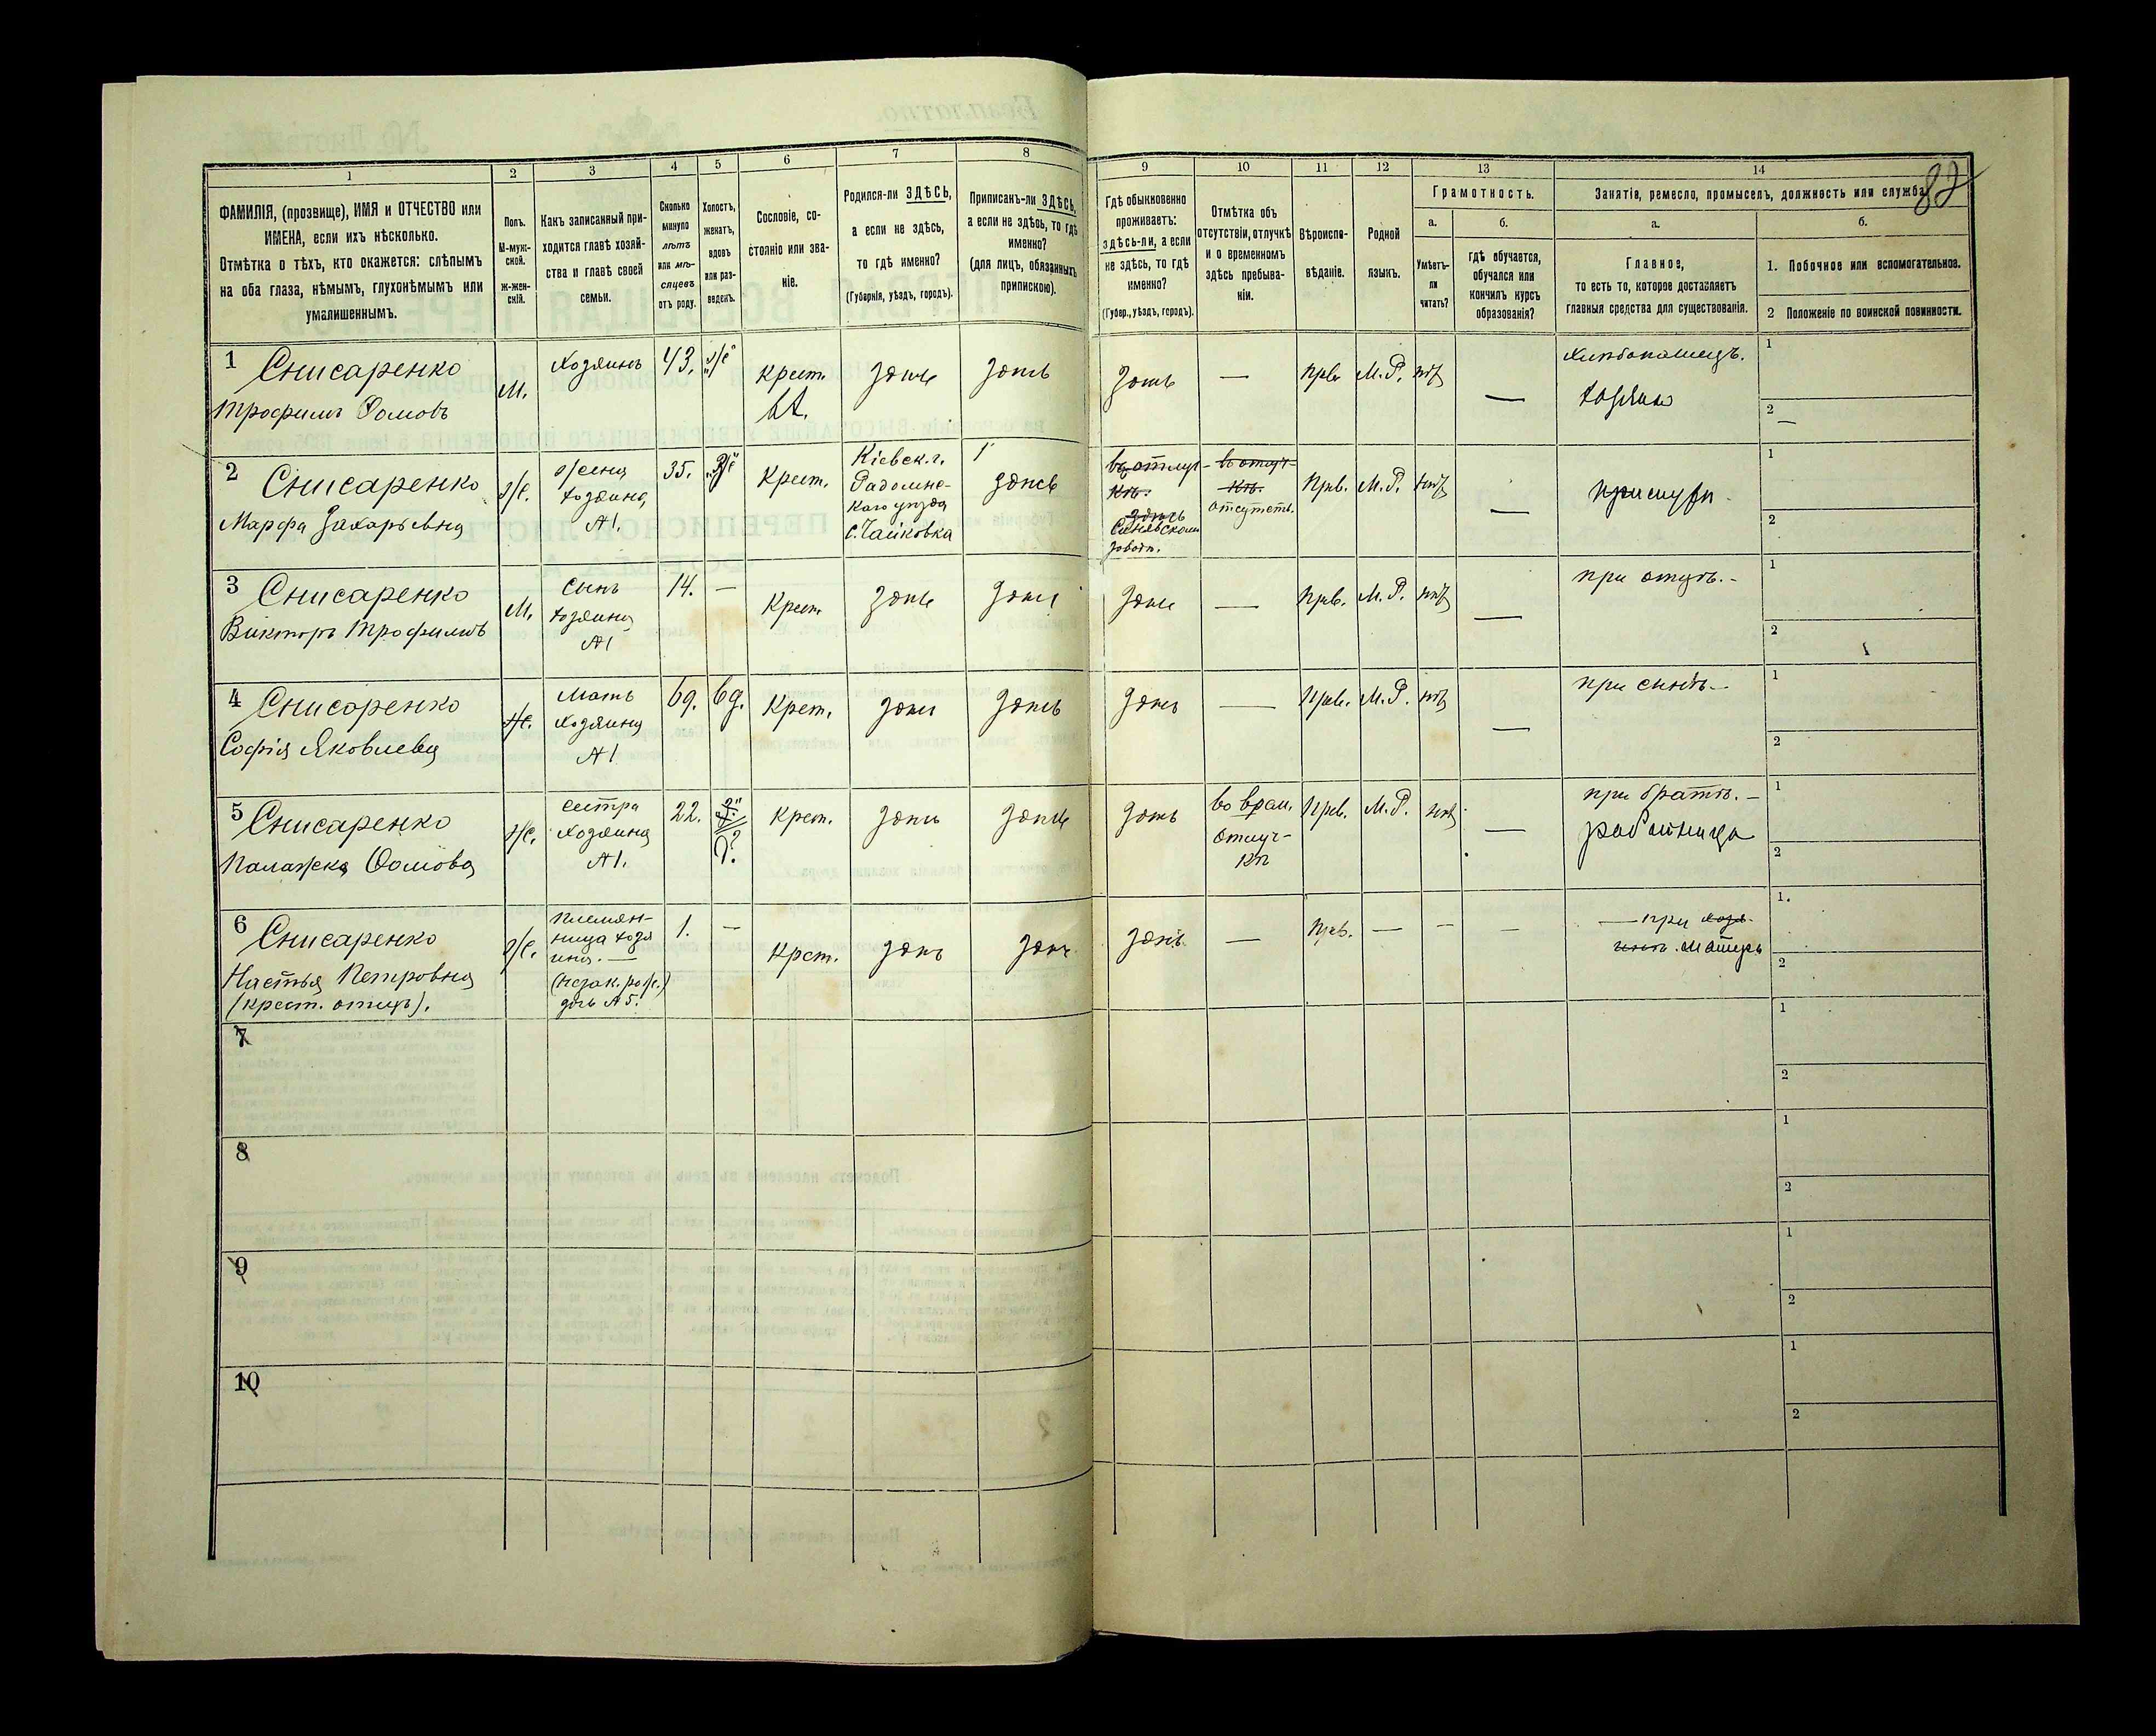 82
1
2
3
4
5
6
7
8
9
10
11
12
13
14
ФАМИЛІЯ, (прозвище), ИМЯ и ОТЧЕСТВО или
ИМЕНА, если ихъ нѣсколько.
Отмѣтка о тѣхъ, кто окажется: слѣпымъ
на оба глаза, нѣмымъ, глухонѣмымъ или
умалишеннымъ.
Полъ.
М-муж-
ской.
Ж-жен-
скій.
Какъ записанный при-
ходится главѣ хозяй-
ства и главѣ своей
семьи.
Сколько
минуло
лѣтъ
или мѣ-
сяцевъ
отъ роду.
Холостъ,
женатъ,
вдовъ
или раз-
веденъ.
Сословіе, со-
стояніе или зва-
ніе.
Родился-ли ЗДѢСЬ,
а если не здѣсь,
то гдѣ именно?
(Губернія, уѣздъ, городъ).
Приписанъ-ли ЗДѢСЬ,
а если не здѣсь, то гдѣ
именно?
(для лицъ, обязанныхъ
припискою).
Гдѣ обыкновенно
проживаетъ:
здѣсь-ли, а если
не здѣсь, то гдѣ
именно?
(Губер., уѣздъ, городъ).
Отмѣтка объ
отсутствіи, отлучкѣ
и о временномъ
здѣсь пребыва-
ніи.
Вѣроиспо-
вѣданіе.
Родной
языкъ.
Грамотность.
а.
Умѣетъ-
ли
читать?
б.
гдѣ обучается,
обучался или
кончилъ курсъ
образованія?
Занятія, ремесло, промыселъ, должность или служба.
а.
Главное,
то есть то, которое доставляетъ
главныя средства для существованія.
б.
1. Побочное или вспомогательное.
2 Положеніе по воинской повинности.
1 Снисаренко
Трофимъ Фомовъ
М.
Хозяинъ
43.
крест.
здѣсь
здѣсь
здѣсь
—
Прв.
М.Р.
нѣтъ
—
Хлѣбопашецъ.
хозяинъ
1
2 —
2 Снисаренко
Марфа Захарьевна
ж.
жена
хозяина,
№1.
35.
Крест.
Кіевск. г.
Радомыс-
каго уѣзда
с. Чайковка
здѣсь
въ отлуч-
кѣ.
здѣсь
заводѣ.
въ отлуч-
кѣ.
отсутств.
Прв.
М.Р.
нѣтъ
—
при мужѣ.
1
2
3 Снисаренко
Викторъ Трофимовъ
М.
Сынъ
хозяина
№1
14.
—
Крест.
здѣсь
здѣсь
здѣсь
—
Прв.
М.Р.
нѣтъ
—
при отцѣ.-
1
2
4 Снисаренко
Софія Яковлева
ж.
Мать
хозяина
№1
69.
вд.
Крест.
здѣсь
здѣсь
здѣсь
—
Прв.
М.Р.
нѣтъ
—
при сынѣ.-
1
2
5 Снисаренко
Палажка Фомова
ж.
сестра
хозяина
№1.
22.
Крест.
здѣсь
здѣсь
здѣсь
во врем.
отлуч-
кѣ
Прв.
М.Р.
нѣтъ
—
при братѣ.-
работница
1
2
6 Снисаренко
Настья Петровна
(крест. отецъ).
ж.
племян-
ница хозя
ина. —
(незак. рож.)
дочь №5.
1.
—
Крст.
здѣсь
здѣсь
здѣсь
—
Прв.
—
—
—
— при хозя-
инѣ. матери
1.
2
7
1
2
8
1
2
9
1
2
10
1
2